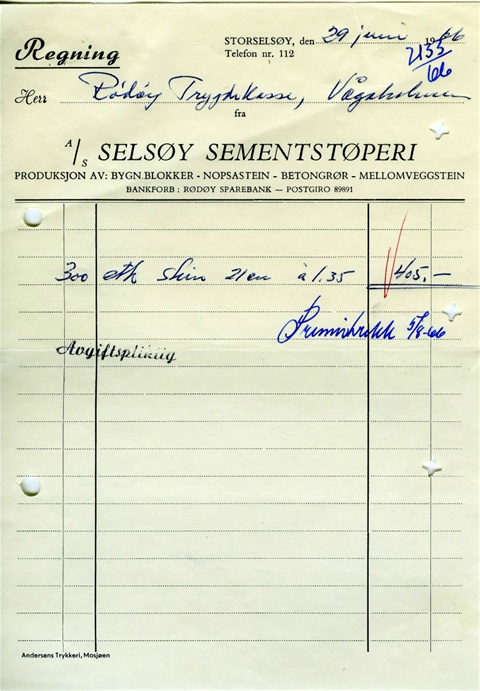 STORSELSØY, den 29 juni 1966
Regning
Telefon nr. 112
2133/66
Herr Rødøy Trygdekasse, Vågaholmen
fra
A/S SELSØY SEMENTSTØPERI
PRODUKSJON AV: BYGN.BLOKKER - NOPSASTEIN - BETONGRØR - MELLOMVEGGSTEIN
BANKFORB: RØDØY SPAREBANK — POSTGIRO 89891
300 stk Stein 21 cm à 1.35 405,-
5/8-66
Avgiftspliktig
Andersens Trykkeri, Mosjøen